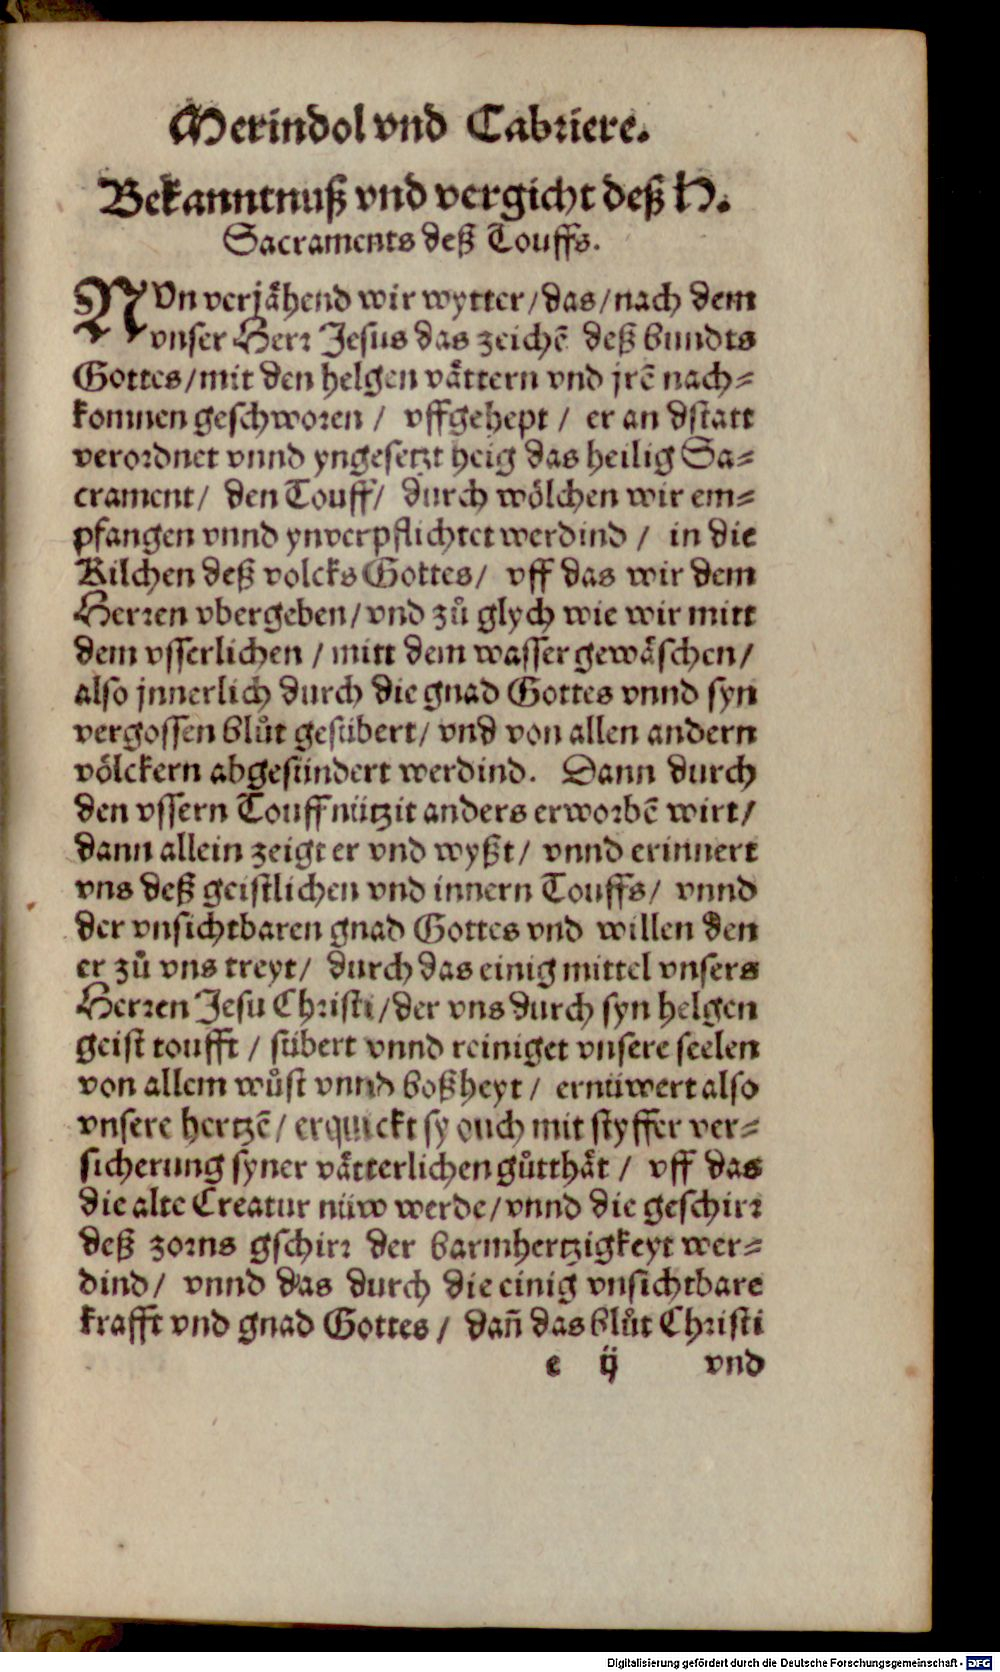 Merindol vnd Cabriere.
Bekanntnuß vnd vergicht deß H.
Sacraments deß Touffs.
NVn verjåhend wir wytter/das/nach dem
vnser Herr Jesus das zeichẽ deß bundts
Gottes/mit den helgen våttern vnd jrẽ nach-
komnen geschworen / vffgehept / er an dstatt
verordnet vnnd yngesetzt heig das heilig Sa-
crament/ den Touff/ durch wölchen wir em-
pfangen vnnd ynverpflichtet werdind / in die
Kilchen deß volcks Gottes/ vff das wir dem
Herren vbergeben/vnd zů glych wie wir mitt
dem vsserlichen / mitt dem wasser gewåschen/
also jnnerlich durch die gnad Gottes vnnd syn
vergossen blůt gesübert/ vnd von allen andern
völckern abgesündert werdind. Dann durch
den vssern Touff nützit anders erworbẽ wirt/
dann allein zeigt er vnd wyßt/ vnnd erinnert
vns deß geistlichen vnd innern Touffs/ vnnd
der vnsichtbaren gnad Gottes vnd willen den
er zů vns treyt/ durch das einig mittel vnsers
Herren Jesu Christi/der vns durch syn helgen
geist toufft / sübert vnnd reiniget vnsere seelen
von allem wůst vnnd boßheyt/ ernüwert also
vnsere hertzẽ/ erquickt sy ouch mit styffer ver-
sicherung syner våtterlichen gůtthåt / vff das
die alte Creatur nüw werde/vnnd die geschirr
deß zorns gschirr der barmhertzigkeyt wer-
dind/ vnnd das durch die einig vnsichtbare
krafft vnd gnad Gottes / dañ das blůt Christi
e ij vnd
Digitalisierung gefördert durch die Deutsche Forschungsgemeinschaft - DFG